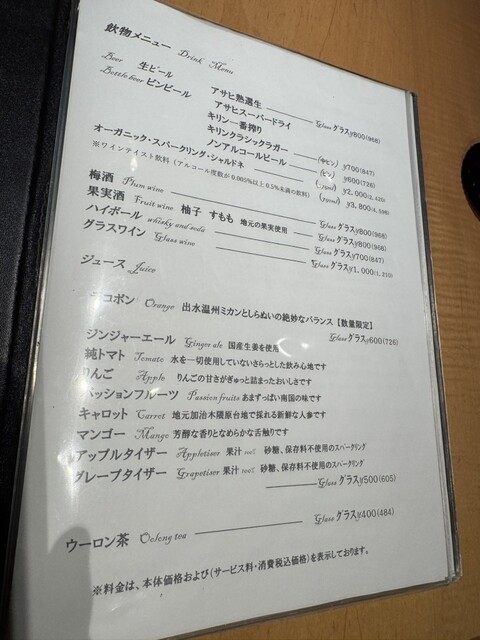 飲物メニュー Drink Menu
Beer 生ビール アサヒ熟選生 Glass グラス¥800(968)
Bottle beer ビンビール アサヒスーパードライ
キリン一番搾り
キリンクラシックラガー (中ビン) ¥700(847)
ノンアルコールビール (ビン) ¥600(726)
オーガニック・スパークリング・シャルドネ ¥2,000
※ワインテイスト飲料(アルコール度数が0.005%以上0.5%未満の飲料) (750ml) ¥3,800
梅酒 Plum wine Glass グラス¥800(968)
果実酒 Fruit wine 柚子 すもも 地元の果実使用 Glass グラス¥800(968)
ハイボール whisky and soda Glass グラス¥700(847)
グラスワイン Glass wine Glass グラス¥1,000(1,210)
ジュース Juice
デコポン Orange 出水温州ミカンとしらぬいの絶妙なバランス【数量限定】
Glass グラス¥600(726)
ジンジャーエール Ginger ale 国産生姜を使用
純トマト Tomato 水を一切使用していないさらっとした飲み心地です
りんご Apple りんごの甘さがぎゅっと詰まったおいしさです
パッションフルーツ Passion fruits あまずっぱい南国の味です
キャロット Carrot 地元加治木隈原台地で採れる新鮮な人参です
マンゴー Mango 芳醇な香りとなめらかな舌触りです
アップルタイザー Appletiser 果汁100% 砂糖、保存料不使用のスパークリング
グレープタイザー Grapetiser 果汁100% 砂糖、保存料不使用のスパークリング
Glass グラス¥500(605)
ウーロン茶 Oolong tea Glass グラス¥400(484)
※料金は、本体価格および(サービス料・消費税込価格)を表示しております。